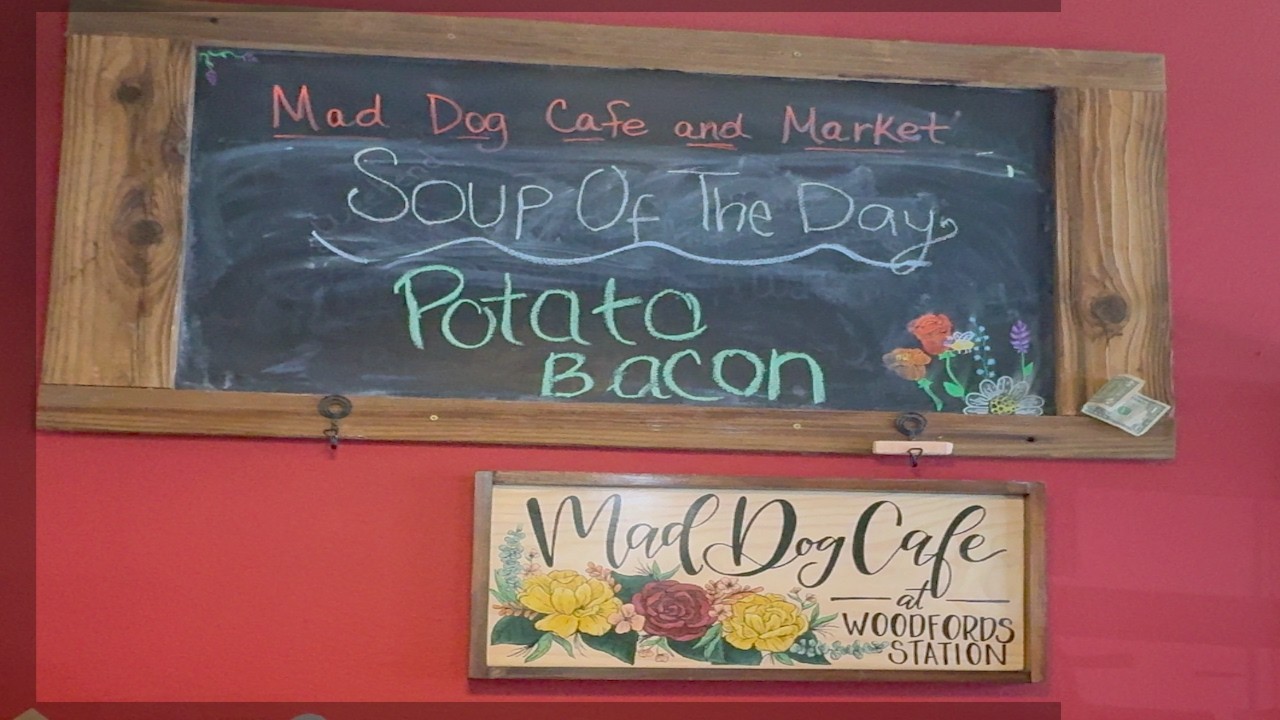 Mad Dog Cafe and Market
Soup Of The Day
Potato
Bacon
Mad Dog Cafe
at
WOODFORDS
STATION